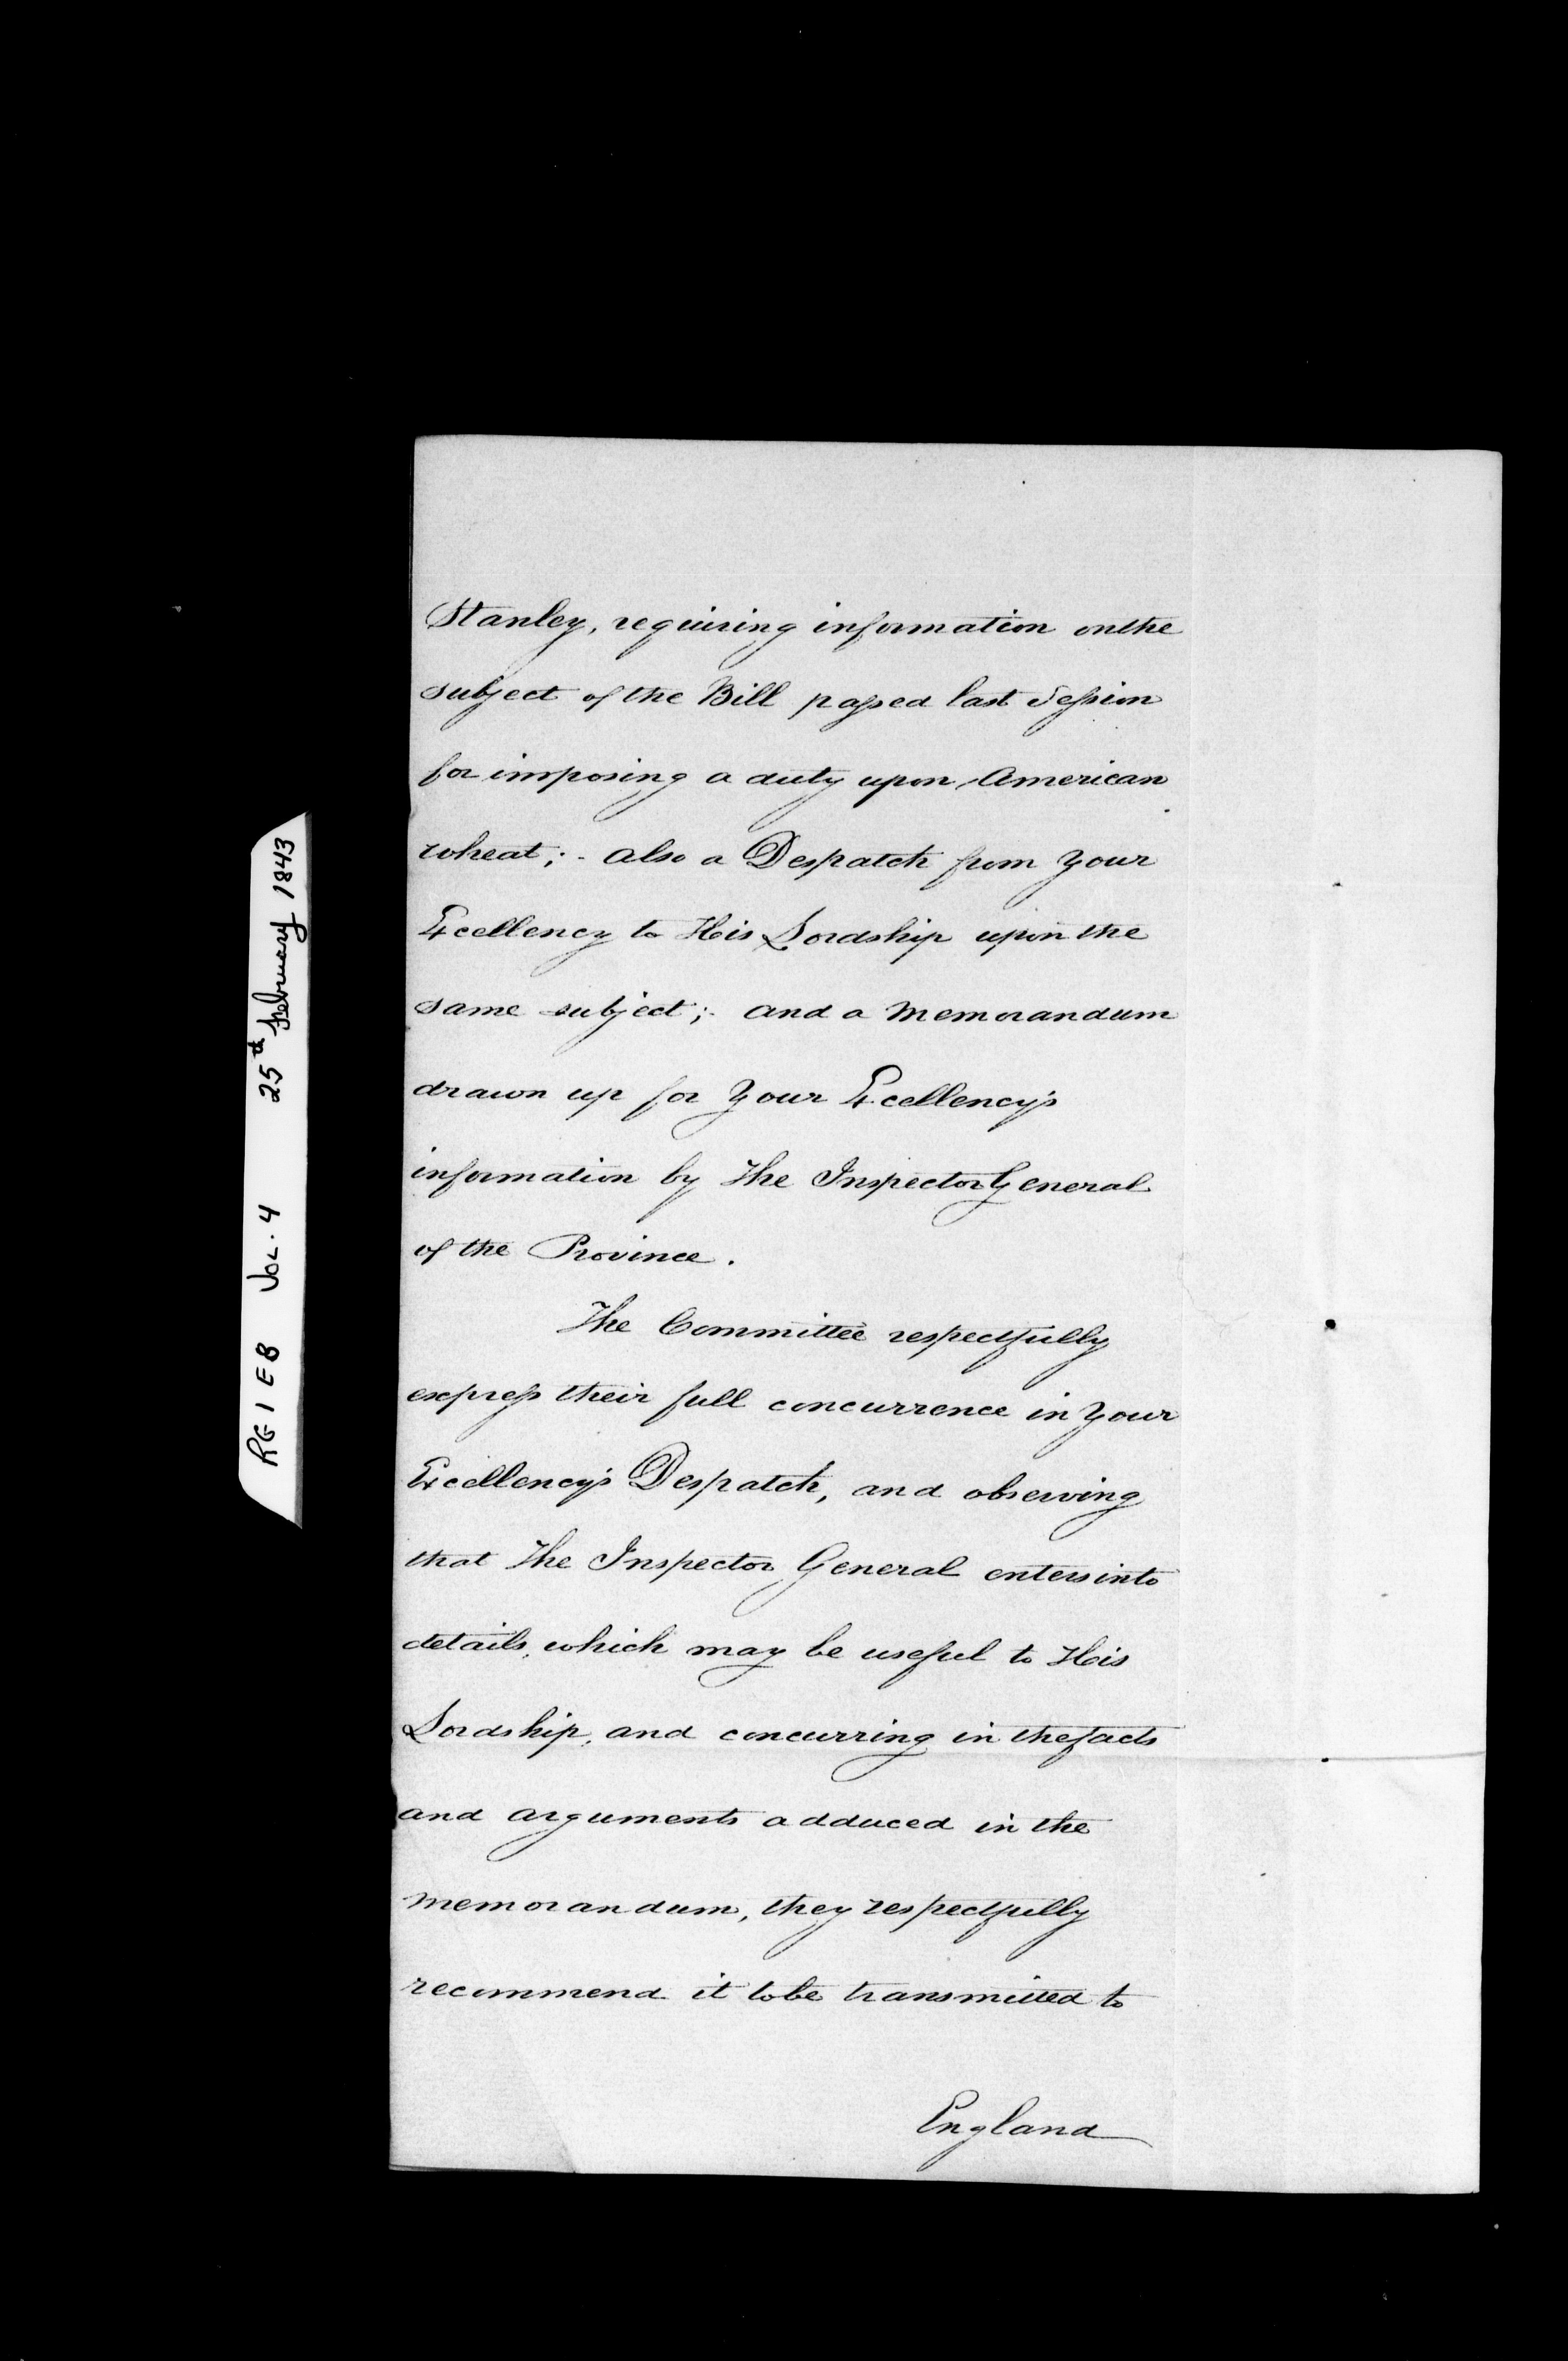 Stanley, requiring information on the
subject of the Bill passed last Session
for imposing a duty upon American
wheat; - also a Despatch from Your
Excellency to His Lordship upon the
same subject; - and a Memorandum
drawn up for Your Excellency's
information by The Inspector General
of the Province.
The Committee respectfully
express their full concurrence in Your
Excellency's Despatch, and observing
that The Inspector General enters into
details, which may be useful to His
Lordship, and concurring in the facts
and arguments adduced in the
memorandum, they respectfully
recommend it to be transmitted to
England
RG 1 E 8 VOL. 4 25th February 1843